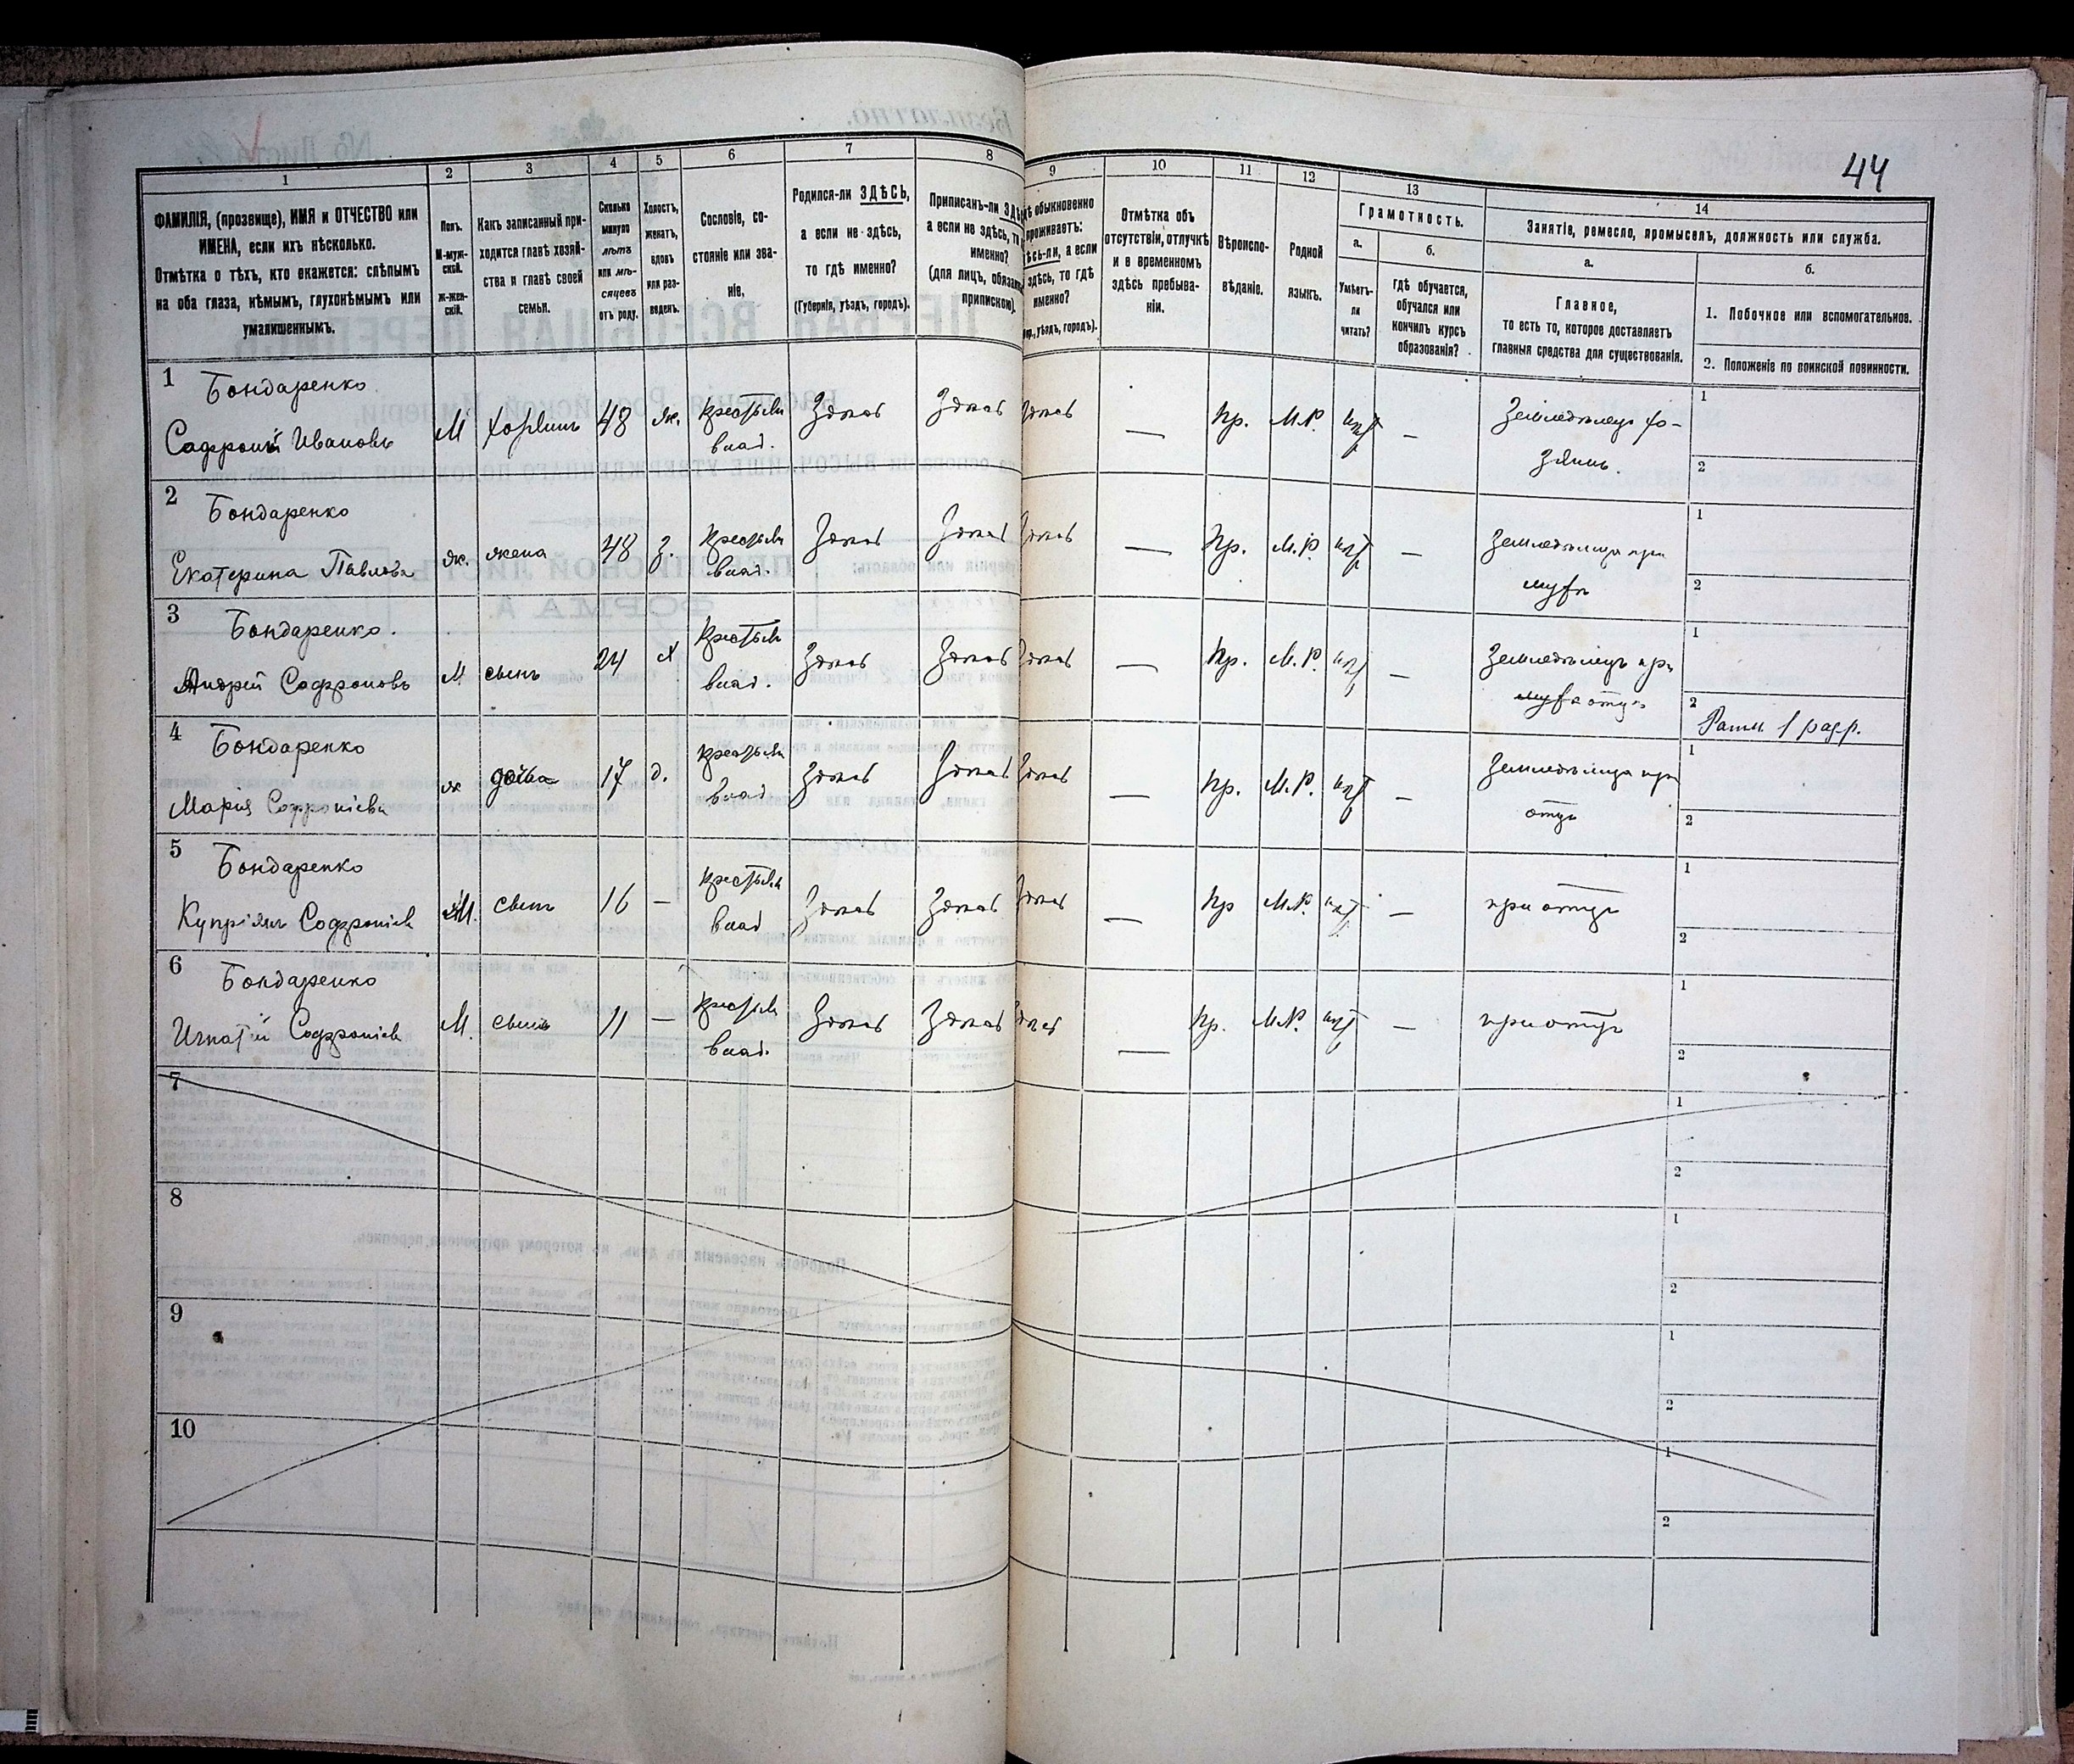 44
1
2
3
4
5
6
7
8
9
10
11
12
13
14
ФАМИЛІЯ, (прозвище), ИМЯ и ОТЧЕСТВО или
ИМЕНА, если ихъ нѣсколько.
Отмѣтка о тѣхъ, кто окажется: слѣпымъ
на оба глаза, нѣмымъ, глухонѣмымъ или
умалишеннымъ.
Полъ.
М-муж-
ской.
Ж-жен-
скій.
Какъ записанный при-
ходится главѣ хозяй-
ства и главѣ своей
семьи.
Сколько
минуло
лѣтъ
или мѣ-
сяцевъ
отъ роду.
Холостъ,
женатъ,
вдовъ
или раз-
веденъ.
Сословіе, со-
стояніе или зва-
ніе.
Родился-ли ЗДѢСЬ,
а если не здѣсь,
то гдѣ именно?
(Губернія, уѣздъ, городъ).
Приписанъ-ли
а если не здѣсь, то
именно?
(для лицъ,
припискою).
обыкновенно
проживаетъ:
а если
здѣсь, то гдѣ
именно?
уѣздъ, городъ).
Отмѣтка объ
отсутствіи, отлучкѣ
и о временномъ
здѣсь пребыва-
ніи.
Вѣроиспо-
вѣданіе.
Родной
языкъ.
Грамотность.
а.
Умѣетъ-
ли
читать?
б.
гдѣ обучается,
обучался или
кончилъ курсъ
образованія?
Занятіе, ремесло, промыселъ, должность или служба.
а.
Главное,
то есть то, которое доставляетъ
главныя средства для существованія.
б.
1. Побочное или вспомогательное.
2. Положеніе по воинской повинности.
1 Бондаренко
Софроній Ивановъ
М хозяинъ 48 ж. крестьян. влад. Здѣсь Здѣсь Здѣсь — Пр. М.Р. нѣт —
Земледѣлецъ хо-
зяинъ.
1
2
2 Бондаренко
Екатерина Павлова
ж. жена 48 з. крестьян. влад. Здѣсь Здѣсь Здѣсь — Пр. М.Р. нѣт —
Земледѣлица при
мужѣ
1
2
3 Бондаренко.
Андрей Софроновъ
М сынъ 24 х крестьян. влад. Здѣсь Здѣсь Здѣсь — Пр. М.Р. нѣт —
Земледѣлецъ при
отцѣ
1
2 Ратн. 1 разр.
4 Бондаренко
Марія Софроніева
ж дочь 17 д. крестьян. влад Здѣсь Здѣсь Здѣсь — Пр. М.Р. нѣт —
Земледѣлица при
отцѣ
1
2
5 Бондаренко
Купріянъ Софроніев
М. сынъ 16 — крестьян. влад Здѣсь Здѣсь Здѣсь — Пр М.Р. нѣт —
при отцѣ
1
2
6 Бондаренко
Игнатій Софроніев
М. сынъ 11 — крестьян. влад. Здѣсь Здѣсь Здѣсь — Пр. М.Р. нѣт —
при отцѣ
1
2
7
1
2
8
1
2
9
1
2
10
1
2